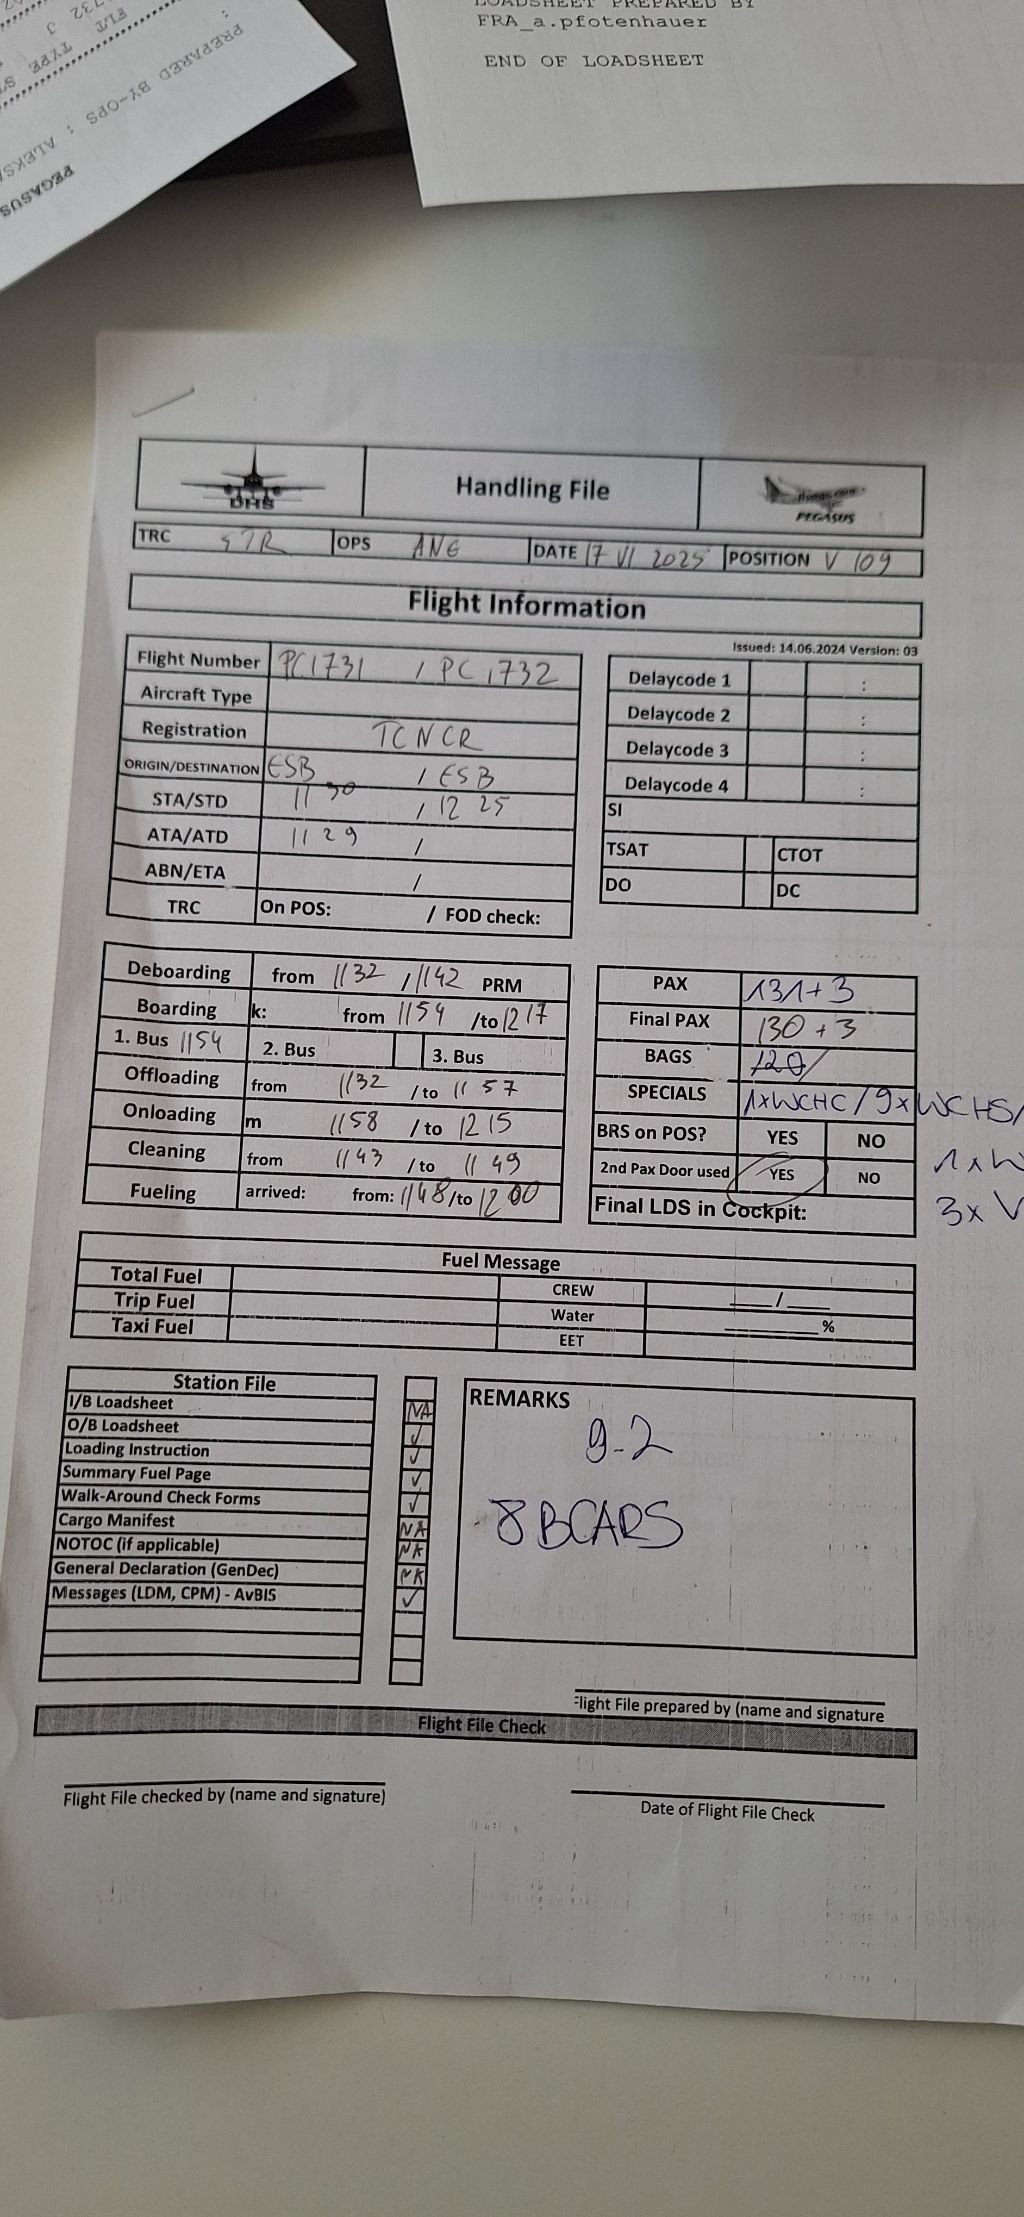 LOADSHEET PREPARED BY
FRA_a.pfotenhauer
END OF LOADSHEET
FLT TYPE
PREPARED BY-OPS : ALEKSA
PEGASUS
DHS
Handling File
PEGASUS
TRC STR OPS ANE DATE 17 VI 2025 POSITION V 109
Flight Information
Issued: 14.06.2024 Version: 03
Flight Number PC1731 / PC1732
Aircraft Type
Registration TCNCR
ORIGIN/DESTINATION ESB / ESB
STA/STD 11 30 / 12 25
ATA/ATD 11 29 /
ABN/ETA /
TRC On POS: / FOD check:
Delaycode 1 :
Delaycode 2 :
Delaycode 3 :
Delaycode 4 :
SI
TSAT CTOT
DO DC
Deboarding from 1132 / 1142 PRM
Boarding k: from 1154 /to 1217
1. Bus 1154 2. Bus 3. Bus
Offloading from 1132 / to 11 57
Onloading m 1158 / to 12 15
Cleaning from 11 43 / to 11 49
Fueling arrived: from: 1148 /to 1200
PAX 131+3
Final PAX 130 + 3
BAGS 120/
SPECIALS 1xWCHC / 9xWCHS/
1x
3x
BRS on POS? YES NO
2nd Pax Door used YES NO
Final LDS in Cockpit:
Fuel Message
Total Fuel CREW ___/___
Trip Fuel Water ______%
Taxi Fuel EET
Station File
I/B Loadsheet NA
O/B Loadsheet ✓
Loading Instruction ✓
Summary Fuel Page ✓
Walk-Around Check Forms ✓
Cargo Manifest NA
NOTOC (if applicable) NA
General Declaration (GenDec) NA
Messages (LDM, CPM) - AvBIS ✓
REMARKS
9-2
8 BCARS
Flight File prepared by (name and signature
Flight File Check
Flight File checked by (name and signature)
Date of Flight File Check